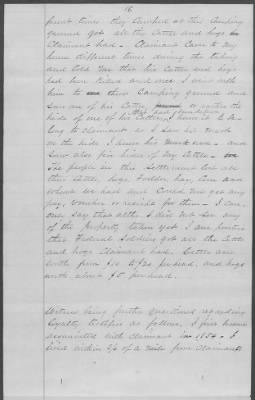 16
ferent times they Camped at this Camping
ground got all the Cattle and hogs
Claimant had - Claimant Came to my
house different times during the taking
and told me that his Cattle and hogs
had been Killed and once I went with
him to their Camping ground and
Saw one of his Cattle, or rather the
hide of one of his Cattle, I knew it to be
long to claimant as I saw his mark
on the hide I knew his mark - and
Saw also five hides of my Cattle -
The people in this Settlement lost all
their Cattle, hogs, fodder, hay, Corn and
whatt we had and Could not get any
pay, voucher or receipt for them - I can
only Say that altho I did not See any
of the property taken yet I am positive
that Federal Soldiers got all the Cattle
and hogs Claimant had. Cattle are
worth from $10 to $20 per head, and hogs
worth about $5 per head.
Witness being further questioned regarding
Loyalty testifies as follows, I first became
acquainted with claimant in 1854 - I
lived within 3/4 of a mile from Claimant